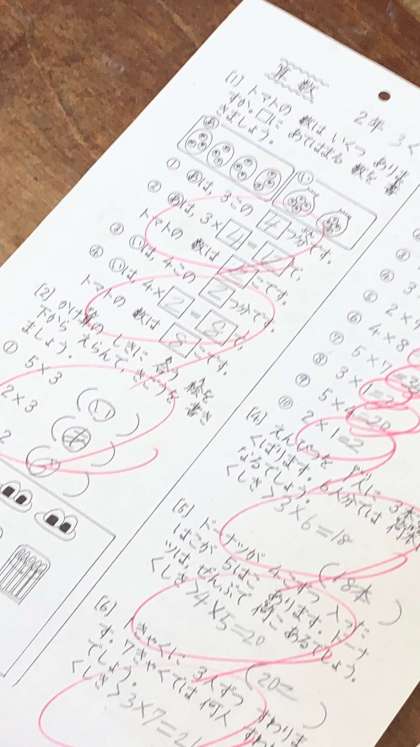 算数
2年 3く
[1] トマトの 数は いくつ ありま
すか。□に あてはまる 数を 書
きましょう。
あ
い
① あは、3この 4つ分です。
② あは、3×4=12で、
トマトの 数は
こです。
③ いは、4この 2つ分です。
④ いは、4×2=8で、
トマトの 数は 8こです。
[2] かけ算の しきに 合う 絵を
下から えらんで、きごうを 書き
ましょう。
① 5×3
(い)
2×3
2
④
⑤
⑥ 4×8
⑦ 5×7
⑧ 3×1=
⑨ 5×4=20
⑩ 2×1=2
[4] えんぴつを 1人に 3本
くばります。6人分では 何本
なるでしょう。
くしき>3×6=18
(18本)
[5] ドーナツが 4こずつ 入った
はこが 5はこ あります。ドーナ
ツは、ぜんぶで 何こ あるでしょう。
くしき>4×5=20
(20こ)
[6] 1きゃくに 3人ずつ すわりま
す。7きゃくでは 何人
でしょう。
くしき>3×7=21